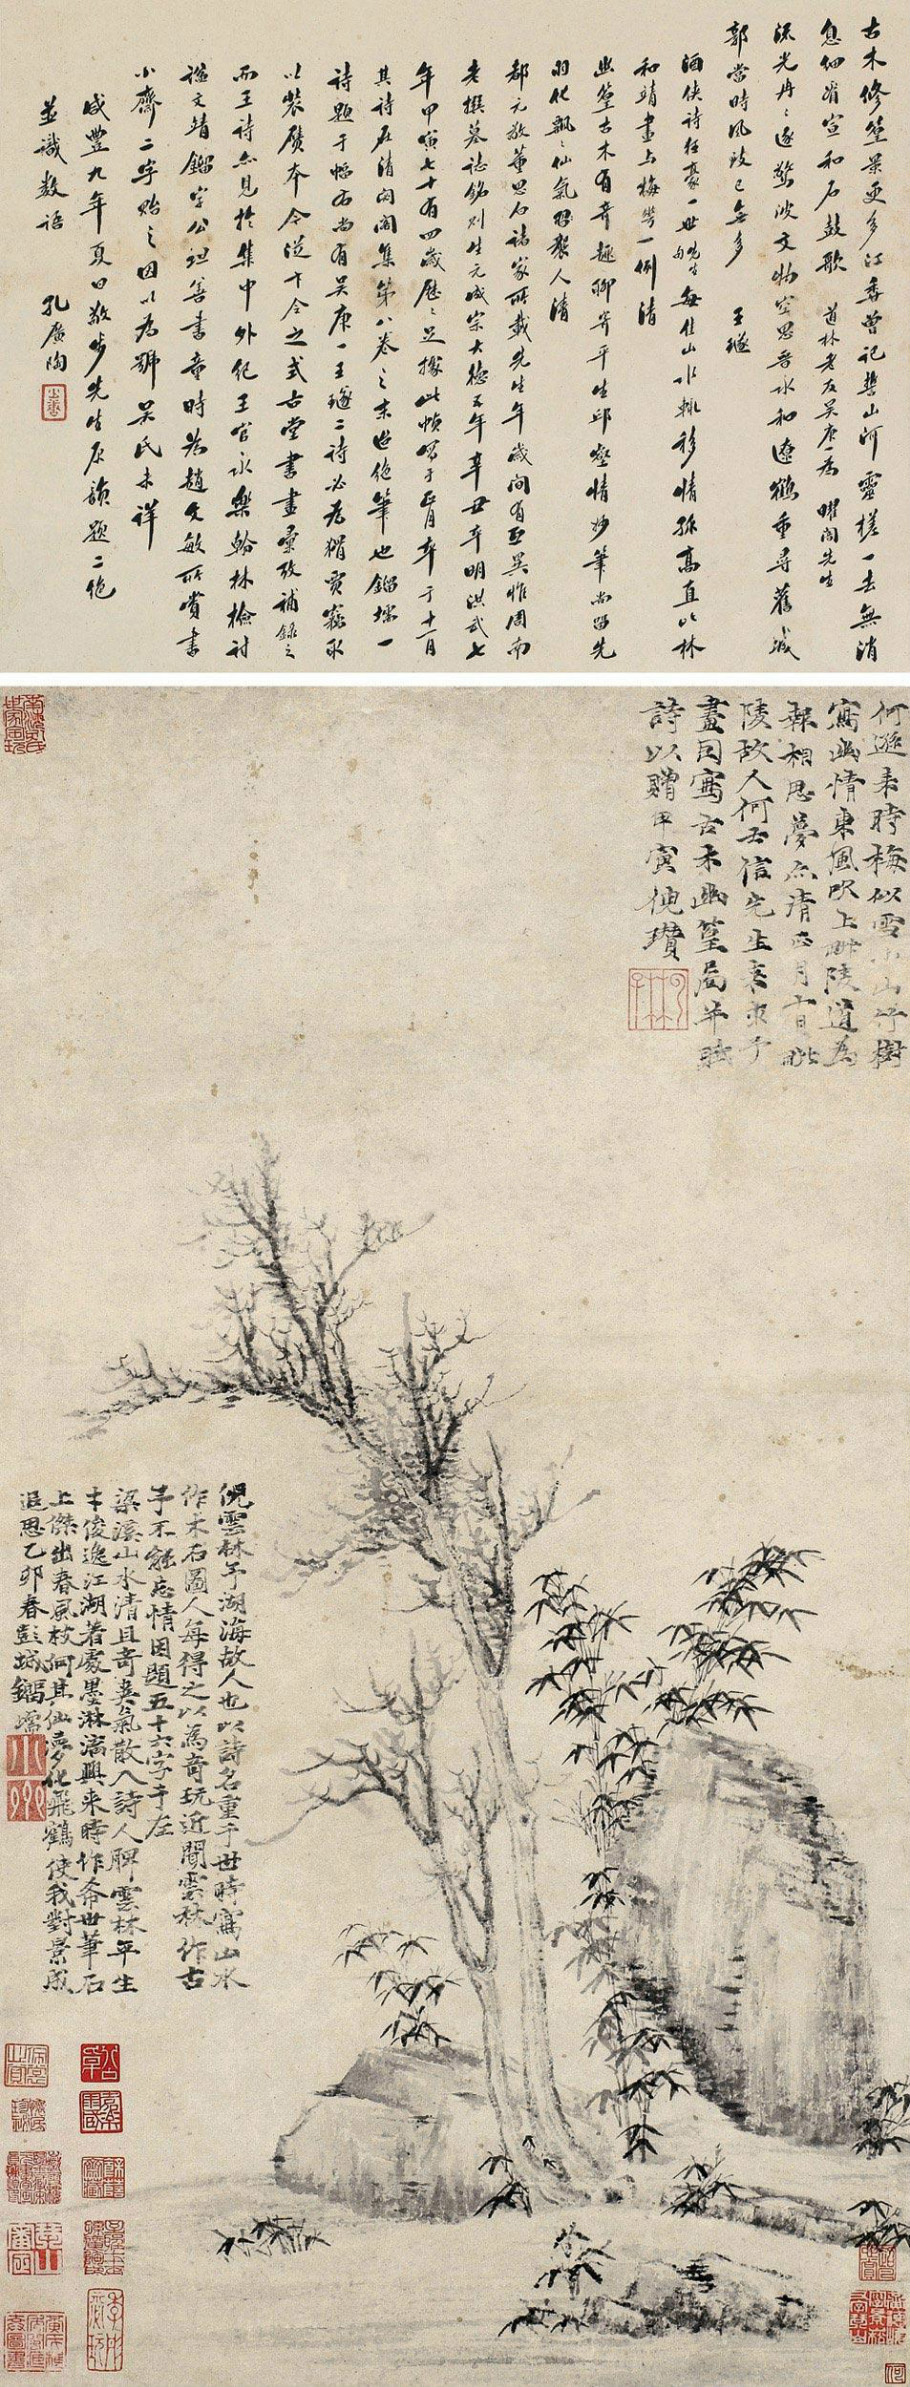 古木修篁景更多江香曾記誓山河靈槎一去無消
息細省宣和石鼓歌 道林老友吳庚一為曜閣先生
流光冉冉逐驚波文物空思晉永和遼鶴重尋舊城
郭當時風致已無多 王璲
酒俠詩狂豪一世先生每作山水輒移情孤高直比林
和靖畫與梅花一例清
幽篁古木有奇趣聊寄平生邱壑情妙筆尚留先
羽化飄飄仙氣襲人清
都元敬董思白諸家所載先生年歲間有互異惟周南
老撰墓誌銘則生元成宗大德五年辛丑卒明洪武七
年甲寅七十有四歲歷歷足據此幀寫于正月卒于十一月
其詩在清閟閣集第八卷之末迨絕筆也鎦壖一
詩題于幅右尚有吳庚一王璲二詩必為猾賈竊取
以裝贋本今從十令之式古堂書畫彙攷補錄之
而王詩亦見於集中外紀王官永樂翰林檢討
謚文靖鎦字公坦善書童時為趙文敏所賞書
小齋二字貽之因以為號吳氏未詳
咸豐九年夏日敬步先生原韻題二絕
並識數語 孔廣陶
何遜來時梅似雪小山竹樹
寫幽情東風吹上毗陵道為
報相思夢亦清正月十日毗
陵故人何士信先生來求予
畫因寫古木幽篁局并賦
詩以贈甲寅倪瓚
倪雲林予湖海故人也以詩名重于世時寫山水
作木石圖人每得之以為奇玩近聞雲林作古
予不能忘情因題五十六字于左
梁溪山水清且奇英氣散入詩人脾雲林平生
才俊逸江湖着處墨淋漓興來時作希世筆石
上傑出春風枝何其仙夢化飛鶴使我對景成
追思乙卯春彭城鎦壖